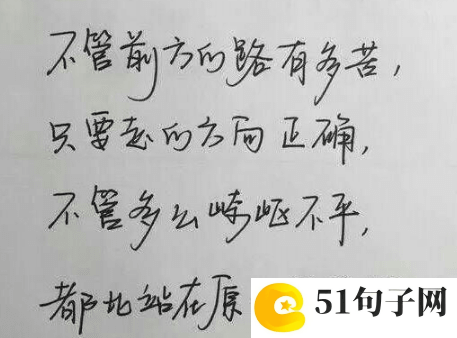 不管前方的路有多苦,
只要走的方向正确,
不管多么崎岖不平,
都比站在原
51句子网